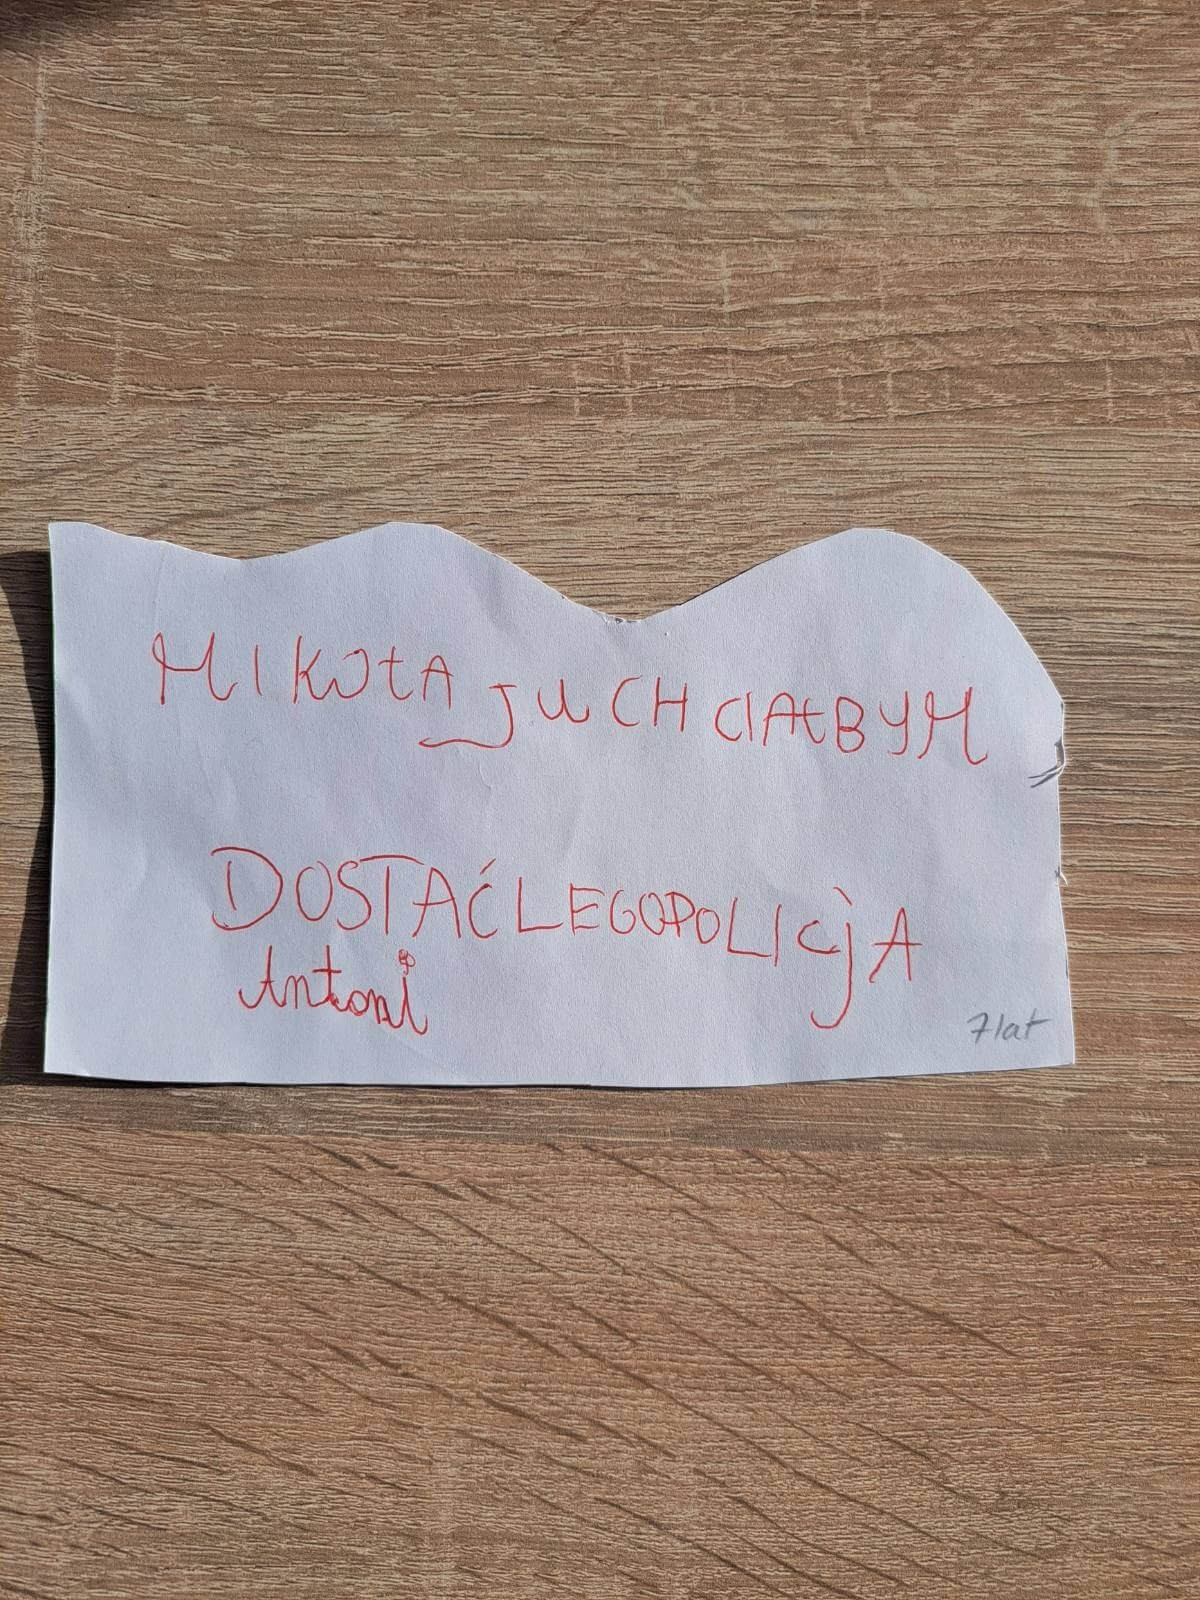 MIKOŁAJU CHCIAŁBYM
DOSTAĆ LEGO POLICJA
Antoni
7 lat